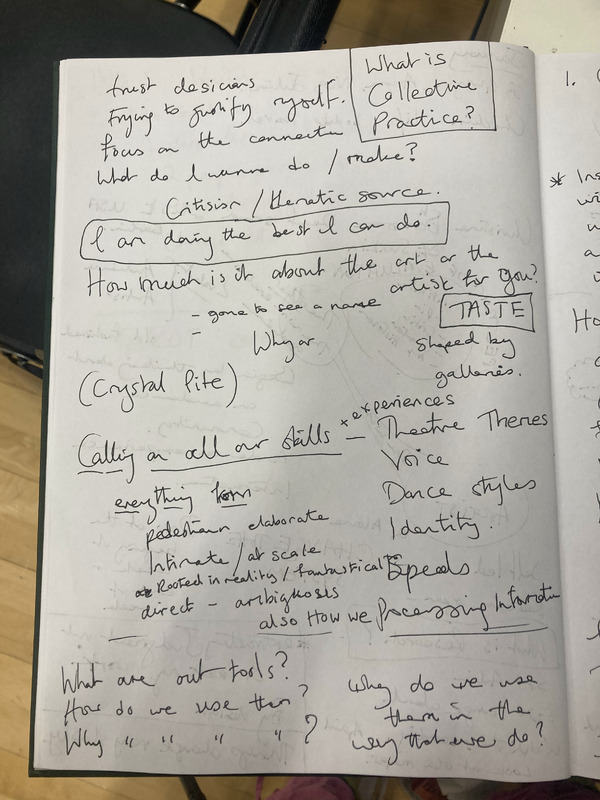 trust desicians
Trying to justify myself.
focus on the connection
What do I wanna do / make?
What is
Collective
Practice?
Critision / thematic source.
I am doing the best I can do.
How much is it about the art or the
artist for you?
- gone to see a name
-
Why or
TASTE
shaped by
galleries.
(Crystal Pite)
Calling on all our skills × experiences
— Theatre Themes
Voice
Dance styles
Identity
Speeds
everything from
pedestrian elaborate
Intimate / at scale
Rooted in reality / fantastical
direct - ambigiosis
also How we Processing Information
What are out tools?
How do we use them?
Why " " " " ?
Why do we use
them in the
way that we do?
1.
* Ins